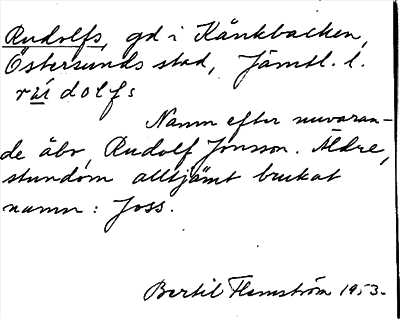 Rudolfs, gd i Kånkbacken,
Östersunds stad, Jämtl. l.
rúdolfs
Namn efter nuvaran-
de åbo, Rudolf Jonsson. Äldre,
stundom alltjämt brukat
namn: Joss.
Bertil Flemström 1953.